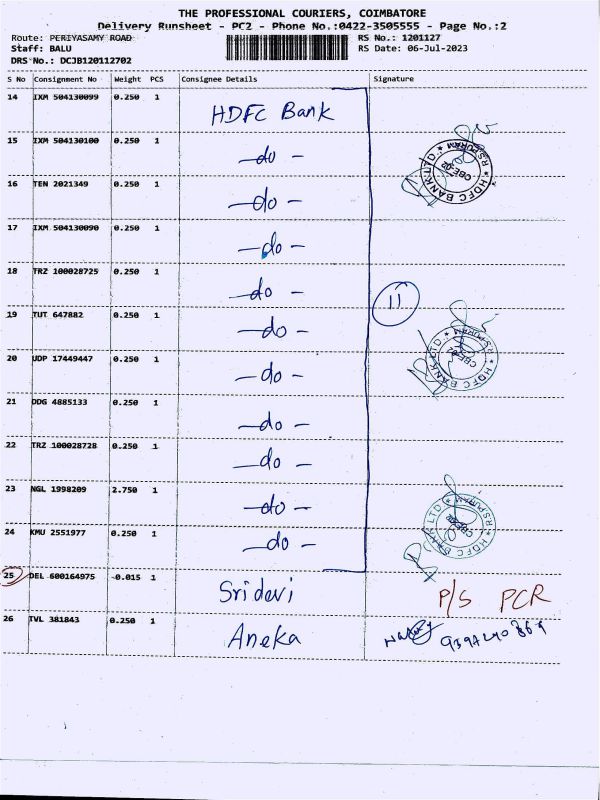 THE PROFESSIONAL COURIERS, COIMBATORE
Delivery Runsheet - PC2 - Phone No.:0422-3505555 - Page No.:2
Route: PERIYASAMY ROAD RS No.: 1201127
Staff: BALU RS Date: 06-Jul-2023
DRS No.: DCJB120112702
S No Consignment No Weight PCS Consignee Details Signature
14 IXM 504130099 0.250 1 HDFC Bank
15 IXM 504130100 0.250 1 -do-
HDFC BANK LTD. R.S.PURAM CBE-02
16 TEN 2021349 0.250 1 -do-
17 IXM 504130090 0.250 1 -do-
18 TRZ 100028725 0.250 1 -do-
11
19 TUT 647882 0.250 1 -do-
HDFC BANK LTD. R.S.PURAM CBE-02
20 UDP 17449447 0.250 1 -do-
21 DDG 4885133 0.250 1 -do-
22 TRZ 100028728 0.250 1 -do-
23 NGL 1998209 2.750 1 -do-
HDFC BANK LTD. R.S.PURAM CBE-02
24 KMU 2551977 0.250 1 -do-
25 DEL 600164975 -0.015 1 Sridevi P/S PCR
26 TVL 381843 0.250 1 Aneka